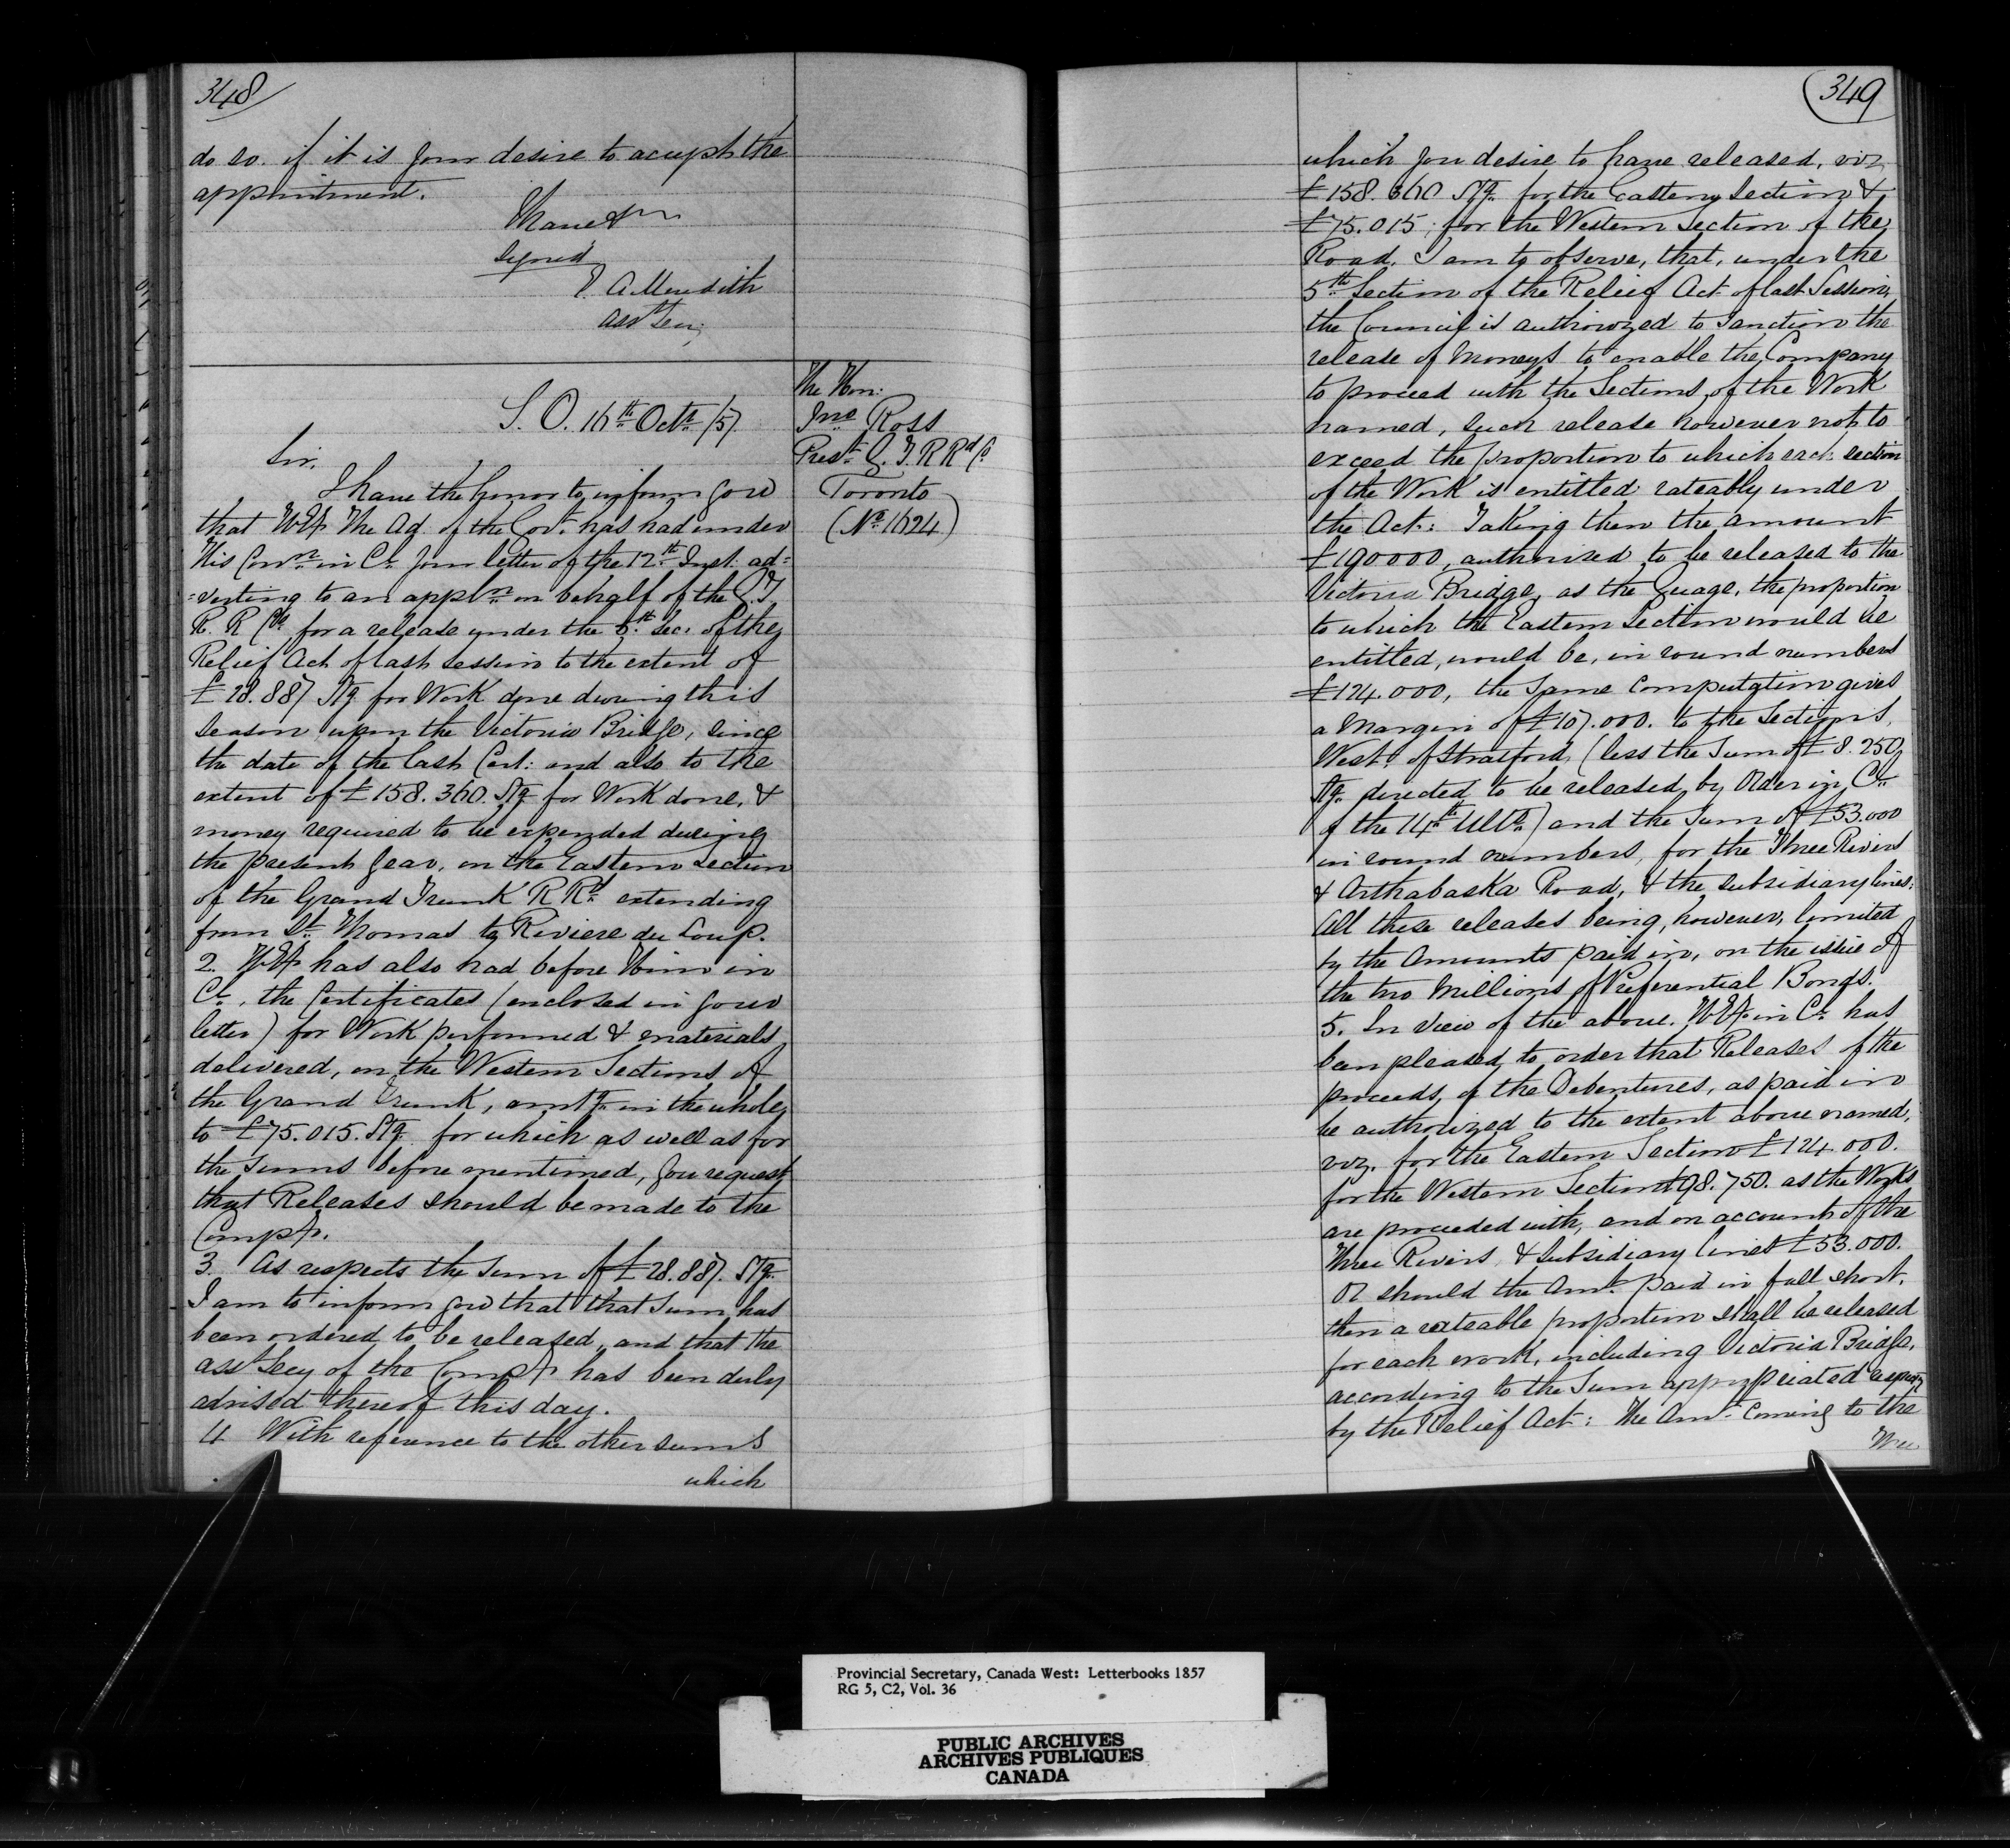 348
do so. if it is your desire to accept the
appointment.
I have &c
Signed
E. A Meredith
Asst Secy
The Hon:
Jno Ross
Prest G. T. R Rd Co
Toronto
(No 1624)
S. O. 16th Octr /57
Sir,
I have the honor to inform you
that H E the Ad. of the Govt. has had under
His Conn in C. your letter of the 12th Inst. ad=
=verting to an appln on behalf of the G. T
R. R Co for a release under the 5th Sec. of the
Relief Act of last session to the extent of
£28.887 Stg for Work done during this
season upon the Victoria Bridge, since
the date of the last Cert: and also to the
extent of £158.360. Stg for Work done, &
money required to be expended during
the present year, on the Eastern Section
of the Grand Trunk R Rd extending
from St Thomas to Riviere du Loup.
2. H E has also had before Him in
C., the Certificates (enclosed in your
letter) for Work performed & materials
delivered, on the Western Sections of
the Grand Trunk, amtg in the whole
to £75.015. Stg for which as well as for
the sums before mentioned, you request
that Releases should be made to the
Compy.
3. As respects the sum of £28.887. Stg.
I am to inform you that that sum has
been ordered to be released, and that the
asst Secy of the Compy has been duly
advised thereof this day.
4 With reference to the other sums
which
349
which you desire to have released, viz
£158.360 Stg. for the Eastern Section &
£75.015; for the Western Section of the
Road. I am to observe, that, under the
5th Section of the Relief Act of last Session,
the Council is authorized to sanction the
release of Moneys to enable the Company
to proceed with the Sections of the Work
named, such release however not to
exceed the proportion to which each section
of the Work is entitled rateably under
the Act: Taking then the amount
£190000, authorised to be released to the
Victoria Bridge, as the Guage, the proportion
to which the Eastern Section would be
entitled, would be, in round numbers
£124.000, the same computation gives
a Margin of £107.000. to the Sections,
West of Stratford, (less the Sum of £8.250
Stg. directed to be released by Order in C.
of the 14th Ulto.) and the Sum of £53.000
in round numbers, for the Three Rivers
& Arthabaska Road, & the subsidiary lines:
All these releases being, however, limited
by the Amounts paid in, on the issue of
the two Millions of Preferential Bonds.
5. In view of the above. H E in C. has
been pleased to order that Releases of the
proceeds, of the Debentures, as paid in
be authorized to the extent above named,
viz. for the Eastern Section £124.000.
for the Western Section £98.750. as the Works
are proceeded with, and on account of the
Three Rivers, & Subsidiary lines £53.000.
Or should the Amt. paid in fall short,
then a rateable proportion shall be released
for each work, including Victoria Bridge,
according to the Sum appropriated
by the Relief Act: The Amt. Coming to the
Provincial Secretary, Canada West: Letterbooks 1857
RG 5, C2, Vol. 36
PUBLIC ARCHIVES
ARCHIVES PUBLIQUES
CANADA